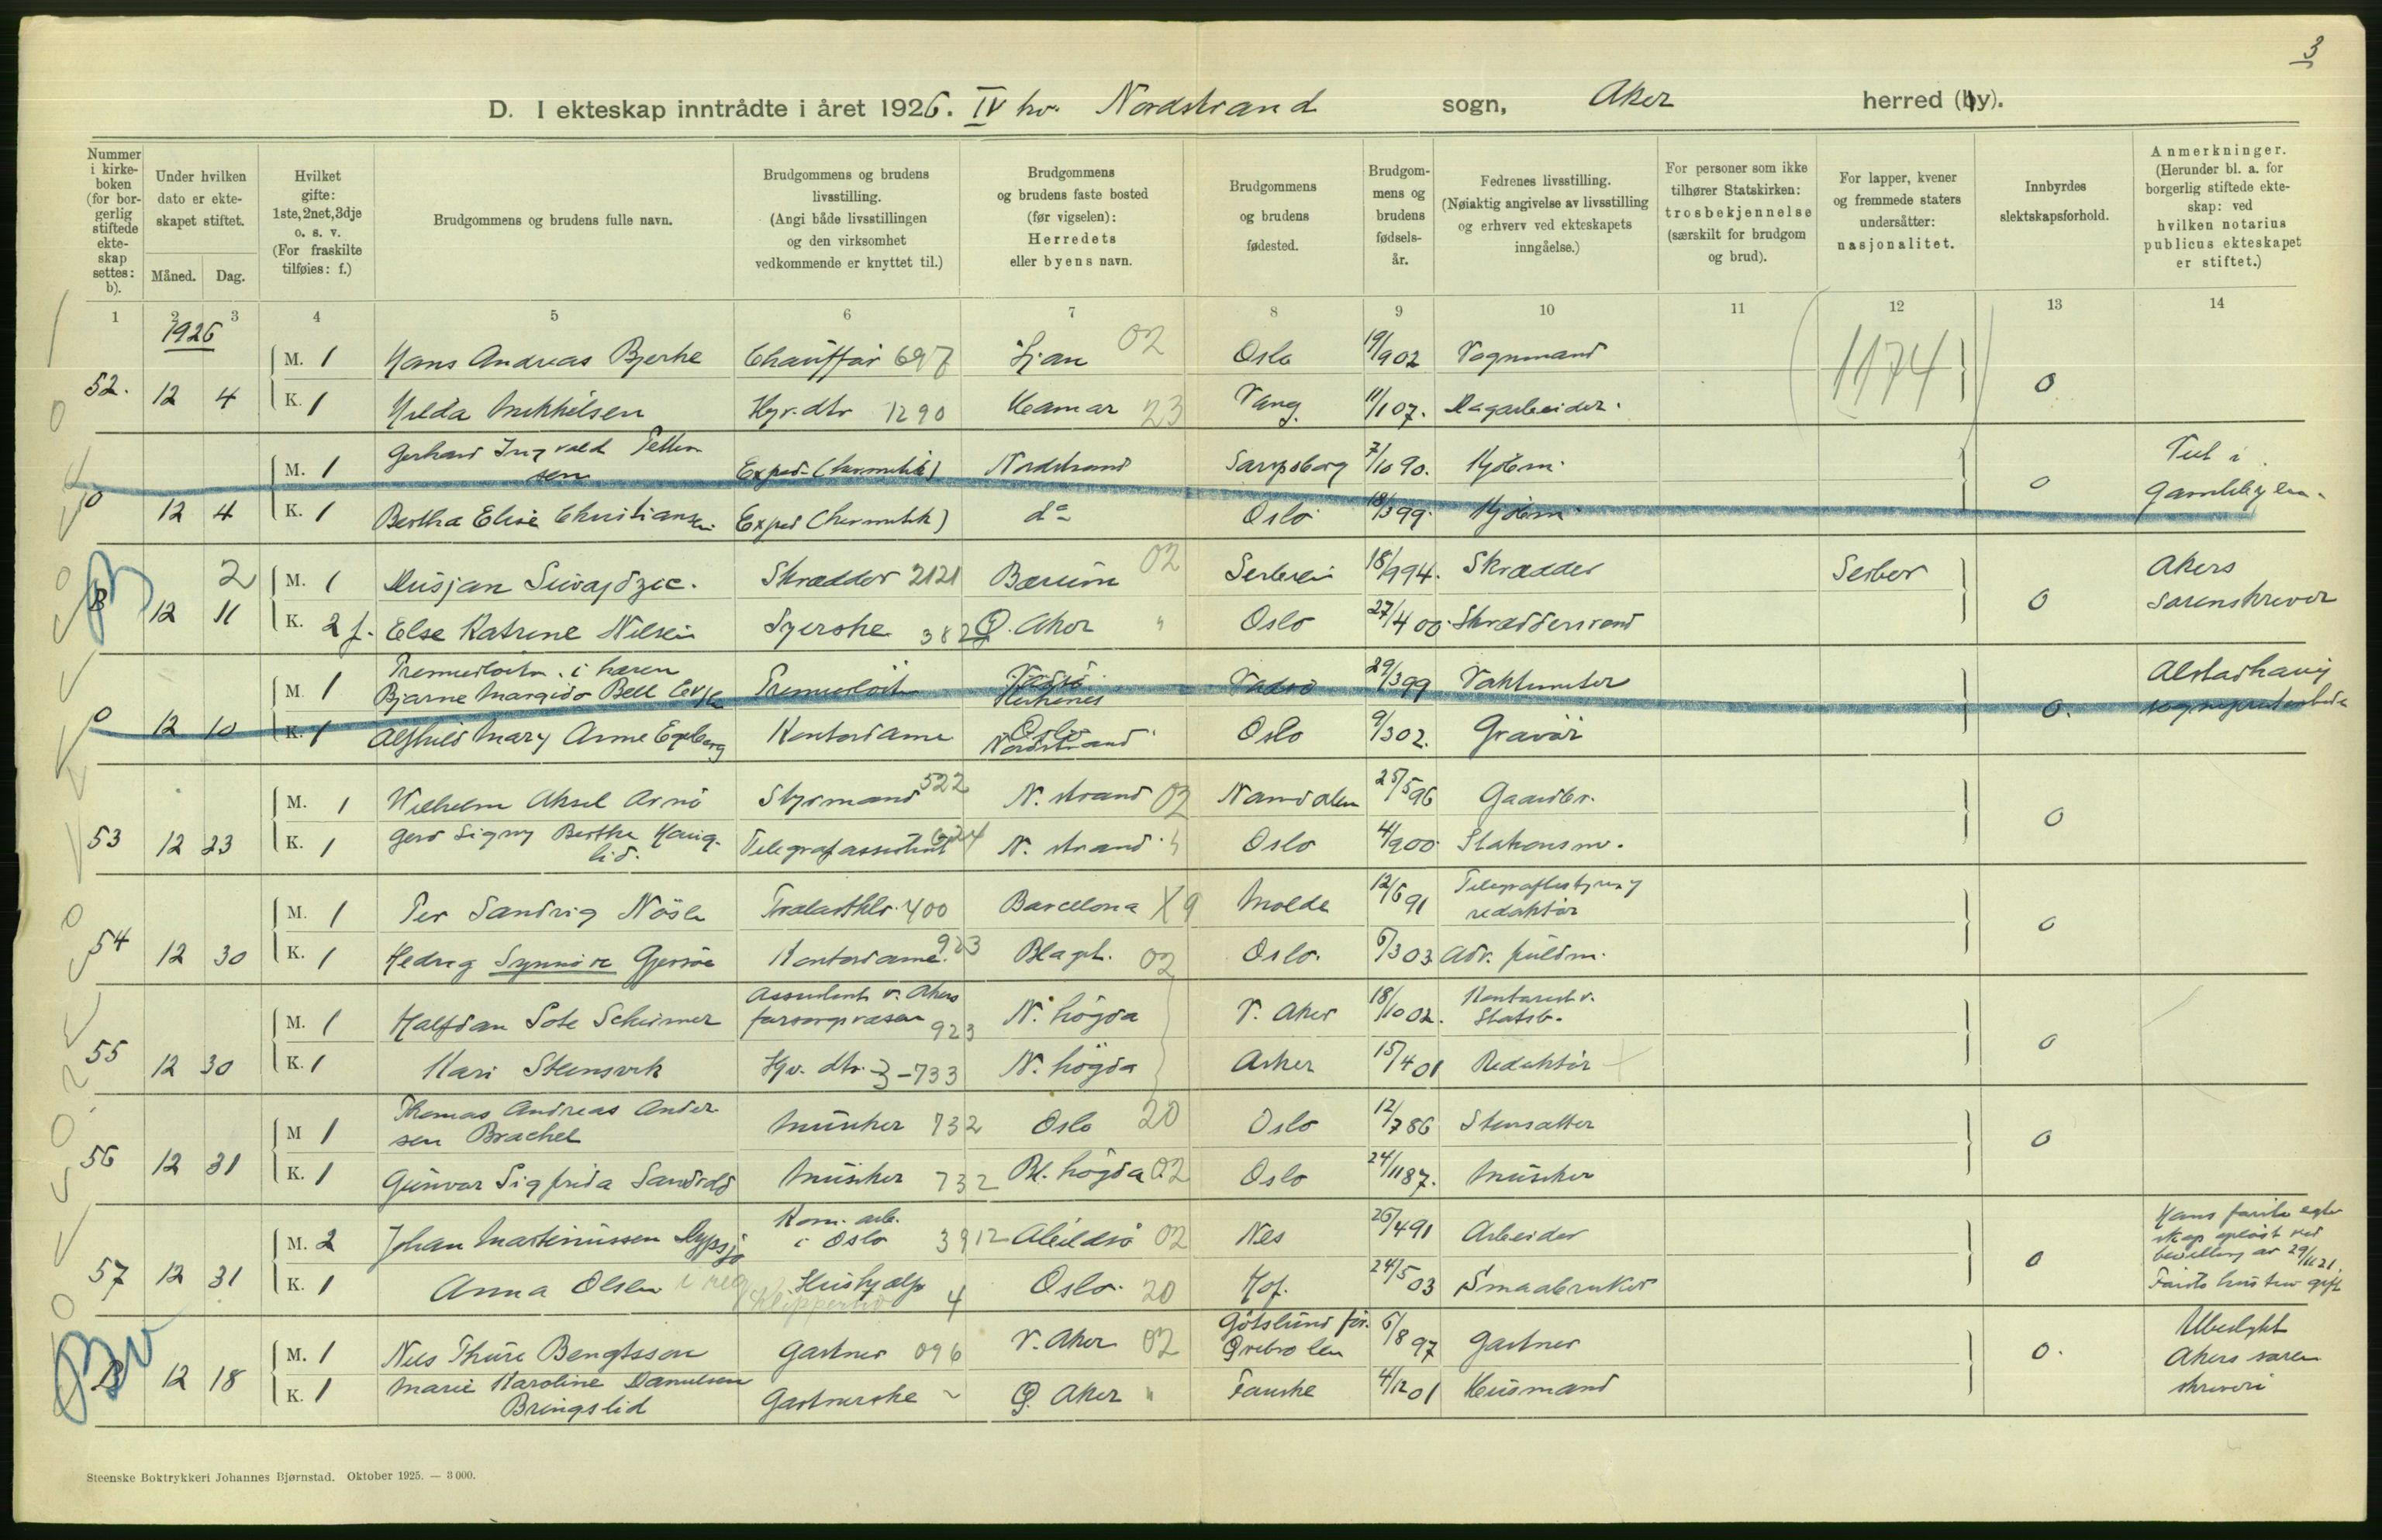 3
D. I ekteskap inntrådte i året 1926. IV kv. Nordstrand sogn, Aker herred (by).
Nummer i kirkeboken (for borgerlig stiftede ekteskap settes: b).
Under hvilken dato er ekteskapet stiftet.
Måned. Dag.
Hvilket gifte: 1ste, 2net, 3dje o. s. v. (For fraskilte tilføies: f.)
Brudgommens og brudens fulle navn.
Brudgommens og brudens livsstilling. (Angi både livsstillingen og den virksomhet vedkommende er knyttet til.)
Brudgommens og brudens faste bosted (før vigselen): Herredets eller byens navn.
Brudgommens og brudens fødested.
Brudgommens og brudens fødselsår.
Fedrenes livsstilling. (Nøiaktig angivelse av livsstilling og erhverv ved ekteskapets inngåelse.)
For personer som ikke tilhører Statskirken: trosbekjennelse (særskilt for brudgom og brud).
For lapper, kvener og fremmede staters undersåtter: nasjonalitet.
Innbyrdes slektskapsforhold.
Anmerkninger. (Herunder bl. a. for borgerlig stiftede ekteskap: ved hvilken notarius publicus ekteskapet er stiftet.)
1 2 3 4 5 6 7 8 9 10 11 12 13 14
1926
M. 1 Hans Andreas Bjerke Chauffør 697 Ljan 02 Oslo 19/9 02 Vognmand 1174
52. 12 4 K. 1 Hilda Mikkelsen Hgv. dtr 1290 Hamar 23 Vang 11/1 07. Dagarbeider. 0
M. 1 Gerhard Ingvald Pettersen Exped. (hermetik) Nordstrand Sarpsborg 7/10 90. Kjøbm. Tul i
0 12 4 K. 1 Bertha Elise Christiansen Exped (hermetik) do Oslo 18/3 99. Kjøbm. 0 Gamlebyen.
2 M. 1 Dusjan Suvajdzic. Skrædder 2121 Bærum 02 Serbien 18/9 94. Skrædder Serber Akers
B 12 11 K. 2 f. Else Katrine Nilsen Syerske 382 Ø. Aker " Oslo 27/4 00. Skræddersvend 0 Sorenskriver
M. 1 Premierløitn. i hæren Bjarne Margido Bell Premierløitn Vadsø Kirkenes Vadsø 29/3 99 Vaktmester Alstadhaug
0 12 10 K. 1 Alfhild Mary Anne Egeberg Kontordame Oslo Nordstrand Oslo 9/3 02. Gravør 0.
M. 1 Wilhelm Aksel Arnø Styrmand 522 N. strand 02 Namdalen 25/5 96 Gaardbr.
53 12 23 K. 1 Gerd Signy Berthe Hauglid. Telegrafassistent 624 N. strand " Oslo 4/9 00 Stationsm. 0
M. 1 Per Sandvig Trælasthdr. 400 Barcelona X9 Molde 12/6 91 Telegrafbestyrer redaktør
54 12 30 K. 1 Hedvig Synnøve Gjersøe Kontordame. 923 Blaph. 02 Oslo. 6/3 03 Adv. fuldm. 0
M. 1 Halfdan Schirmer Assistent v. Akers forsorgsvæsen 923 N. högda V. Aker 18/10 02. Kontorist v. Statsb.
55 12 30 K. 1 Kari Stensvik Hgv. dtr. 3-733 N. högda Asker 15/4 01 Redaktør 0
M 1 Thomas Andreas Andersen Brachel Musiker 732 Oslo 20 Oslo 12/7 86 Stensætter
56 12 31 K. 1 Gunvor Sigfrida Sandvold Musiker 732 Bl. högda 02 Oslo 24/11 87. Musiker 0
M. 2 Johan Martinussen Kom. arb. i Oslo 3912 Abildsø 02 Nes 26/4 91 Arbeider Hans første egteskap opløst ved bevilling av 29/11 21.
57 12 31 K. 1 Anna Olsen Hushjælp 4 Oslo. 20 Hof. 24/5 03 Smaabruker 0 Første hustru gift
M. 1 Nils Thure Bengtsson Gartner 096 V. Aker 02 Götslund för. Örebro len 6/8 97 Gartner Ubeslegt
B 12 18 K. 1 Marie Karoline Danielsen Bringslid Gartnerske ~ Ø. Aker " Fauske 4/12 01 Husmand 0. Akers sorenskriveri
Steenske Boktrykkeri Johannes Bjørnstad. Oktober 1925. — 3 000.